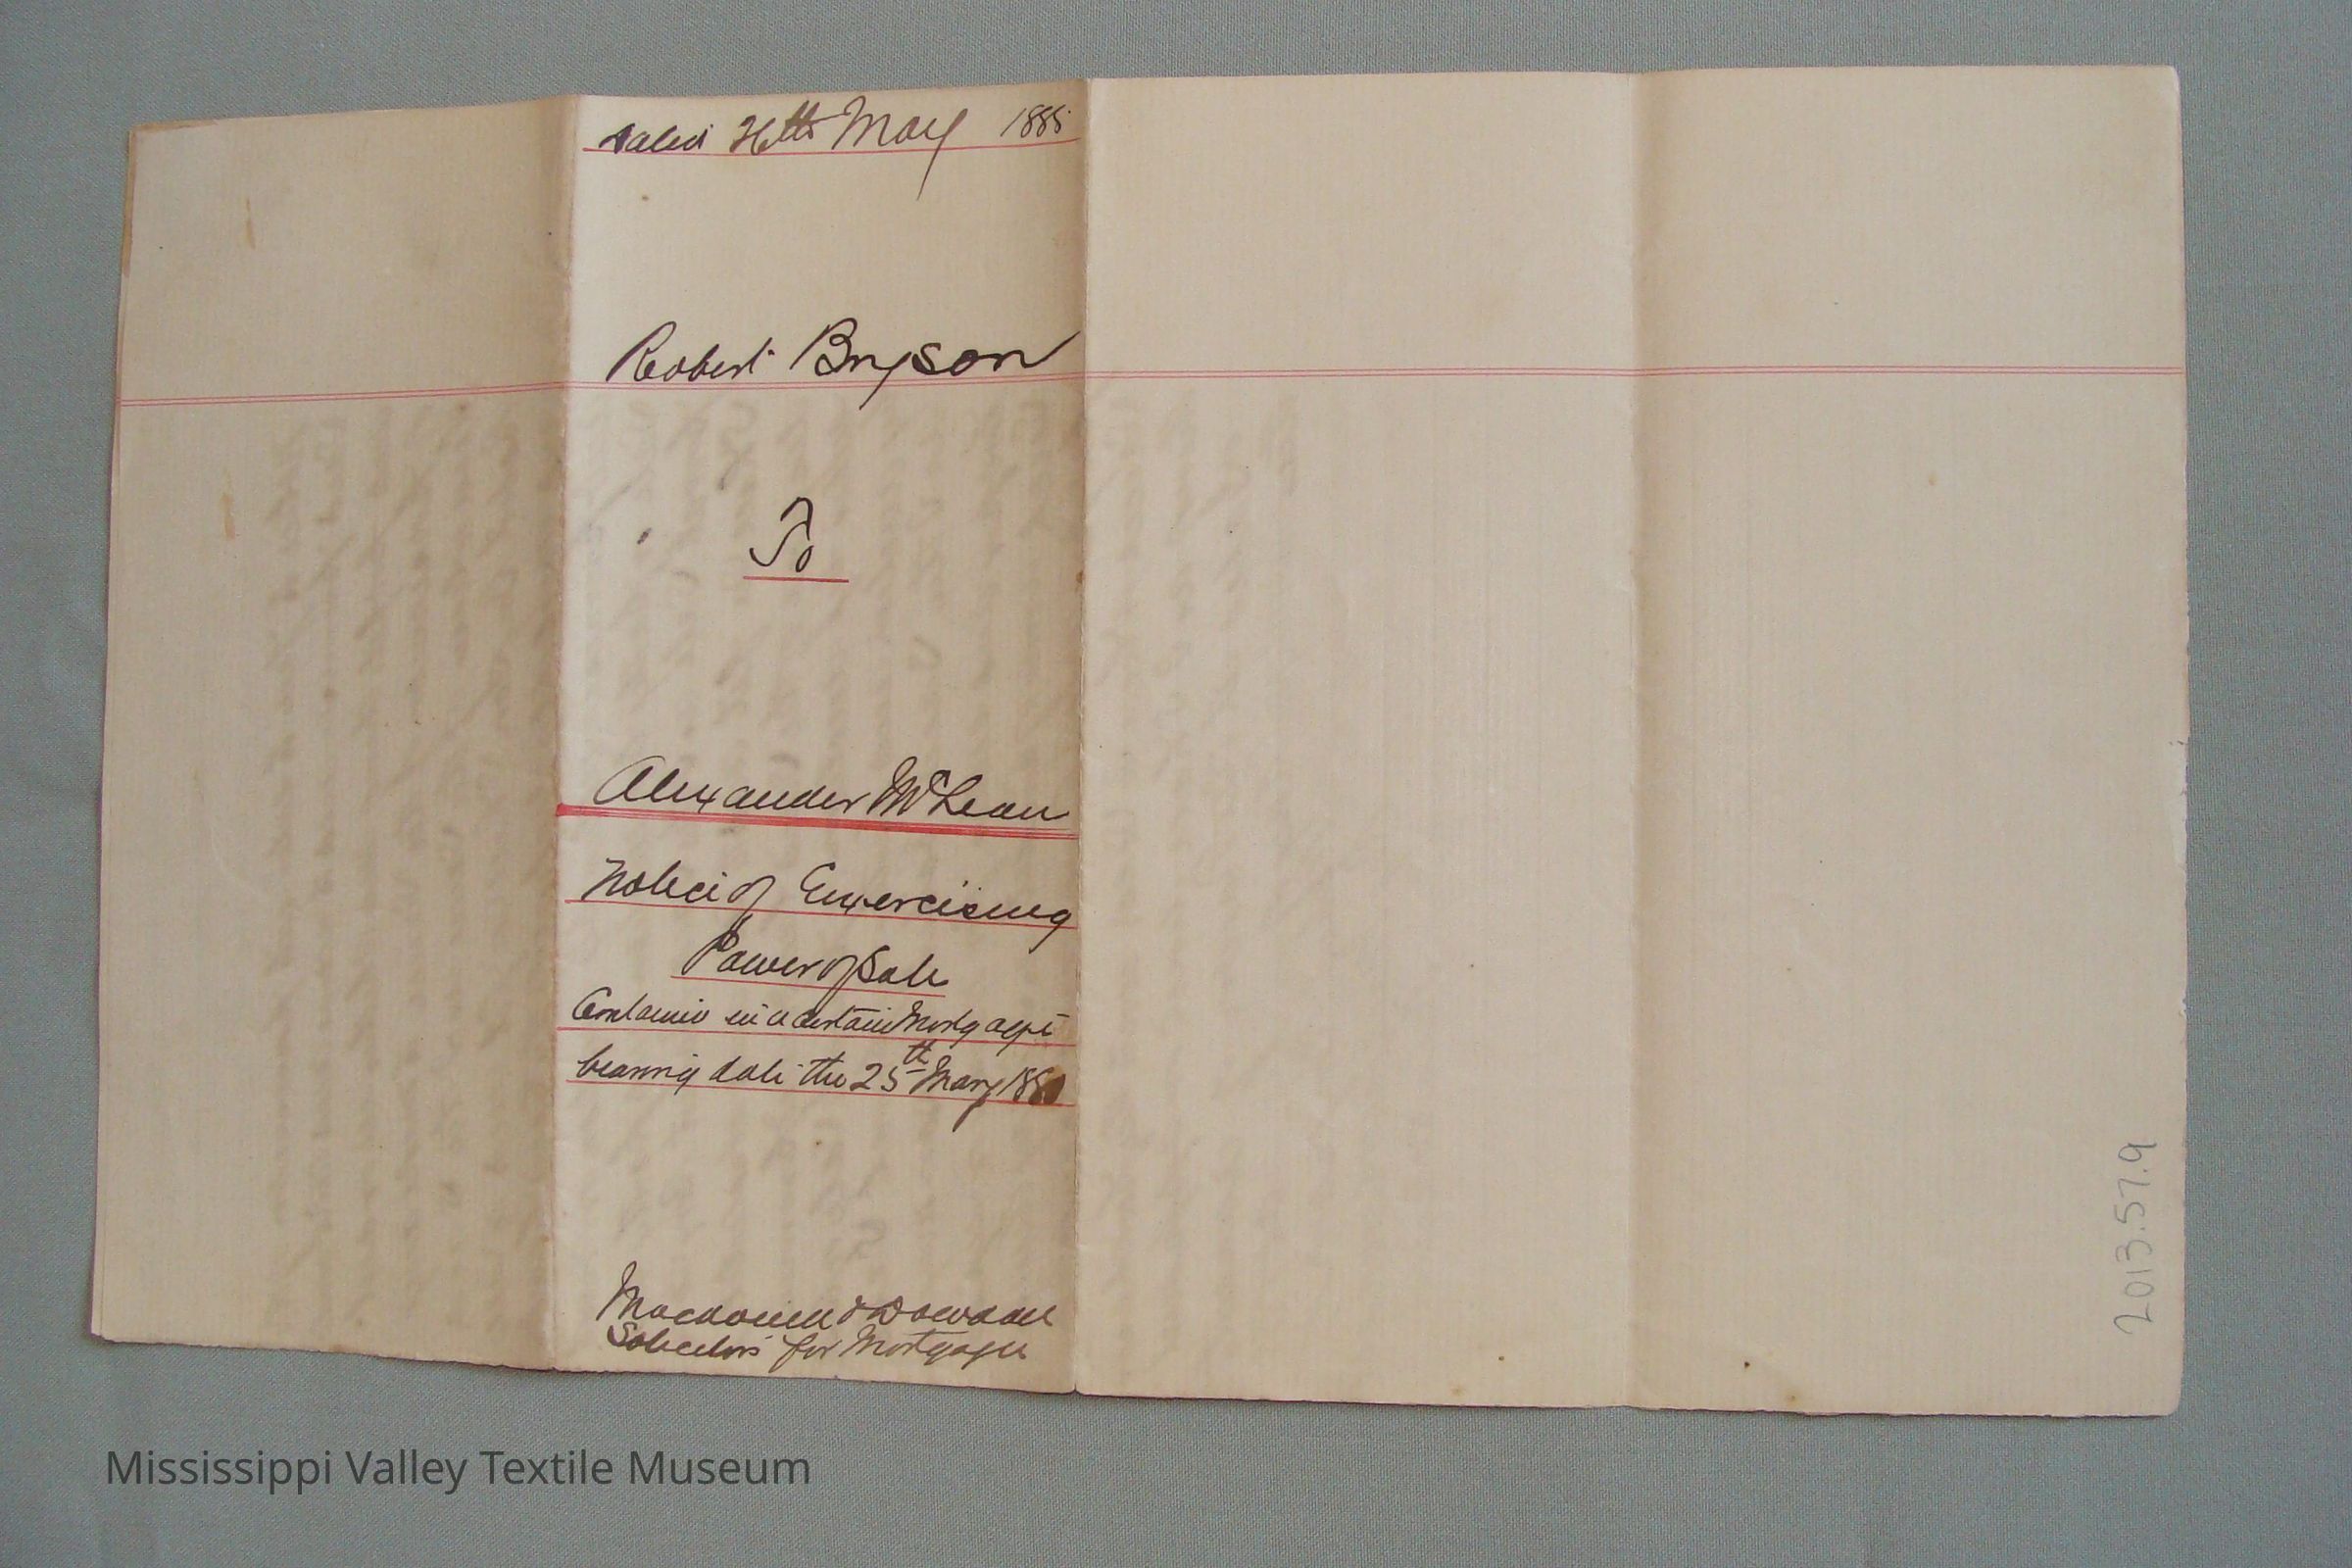 Dated 26th May 1885
Robert Bryson
To
Alexander McLean
Notice of Exercising
Power of Sale
Contained in a certain Mortgage
bearing date the 25th May 1880
Macdonell & Dowdall
Solicitors for Mortgagee
2013.57.9
Mississippi Valley Textile Museum